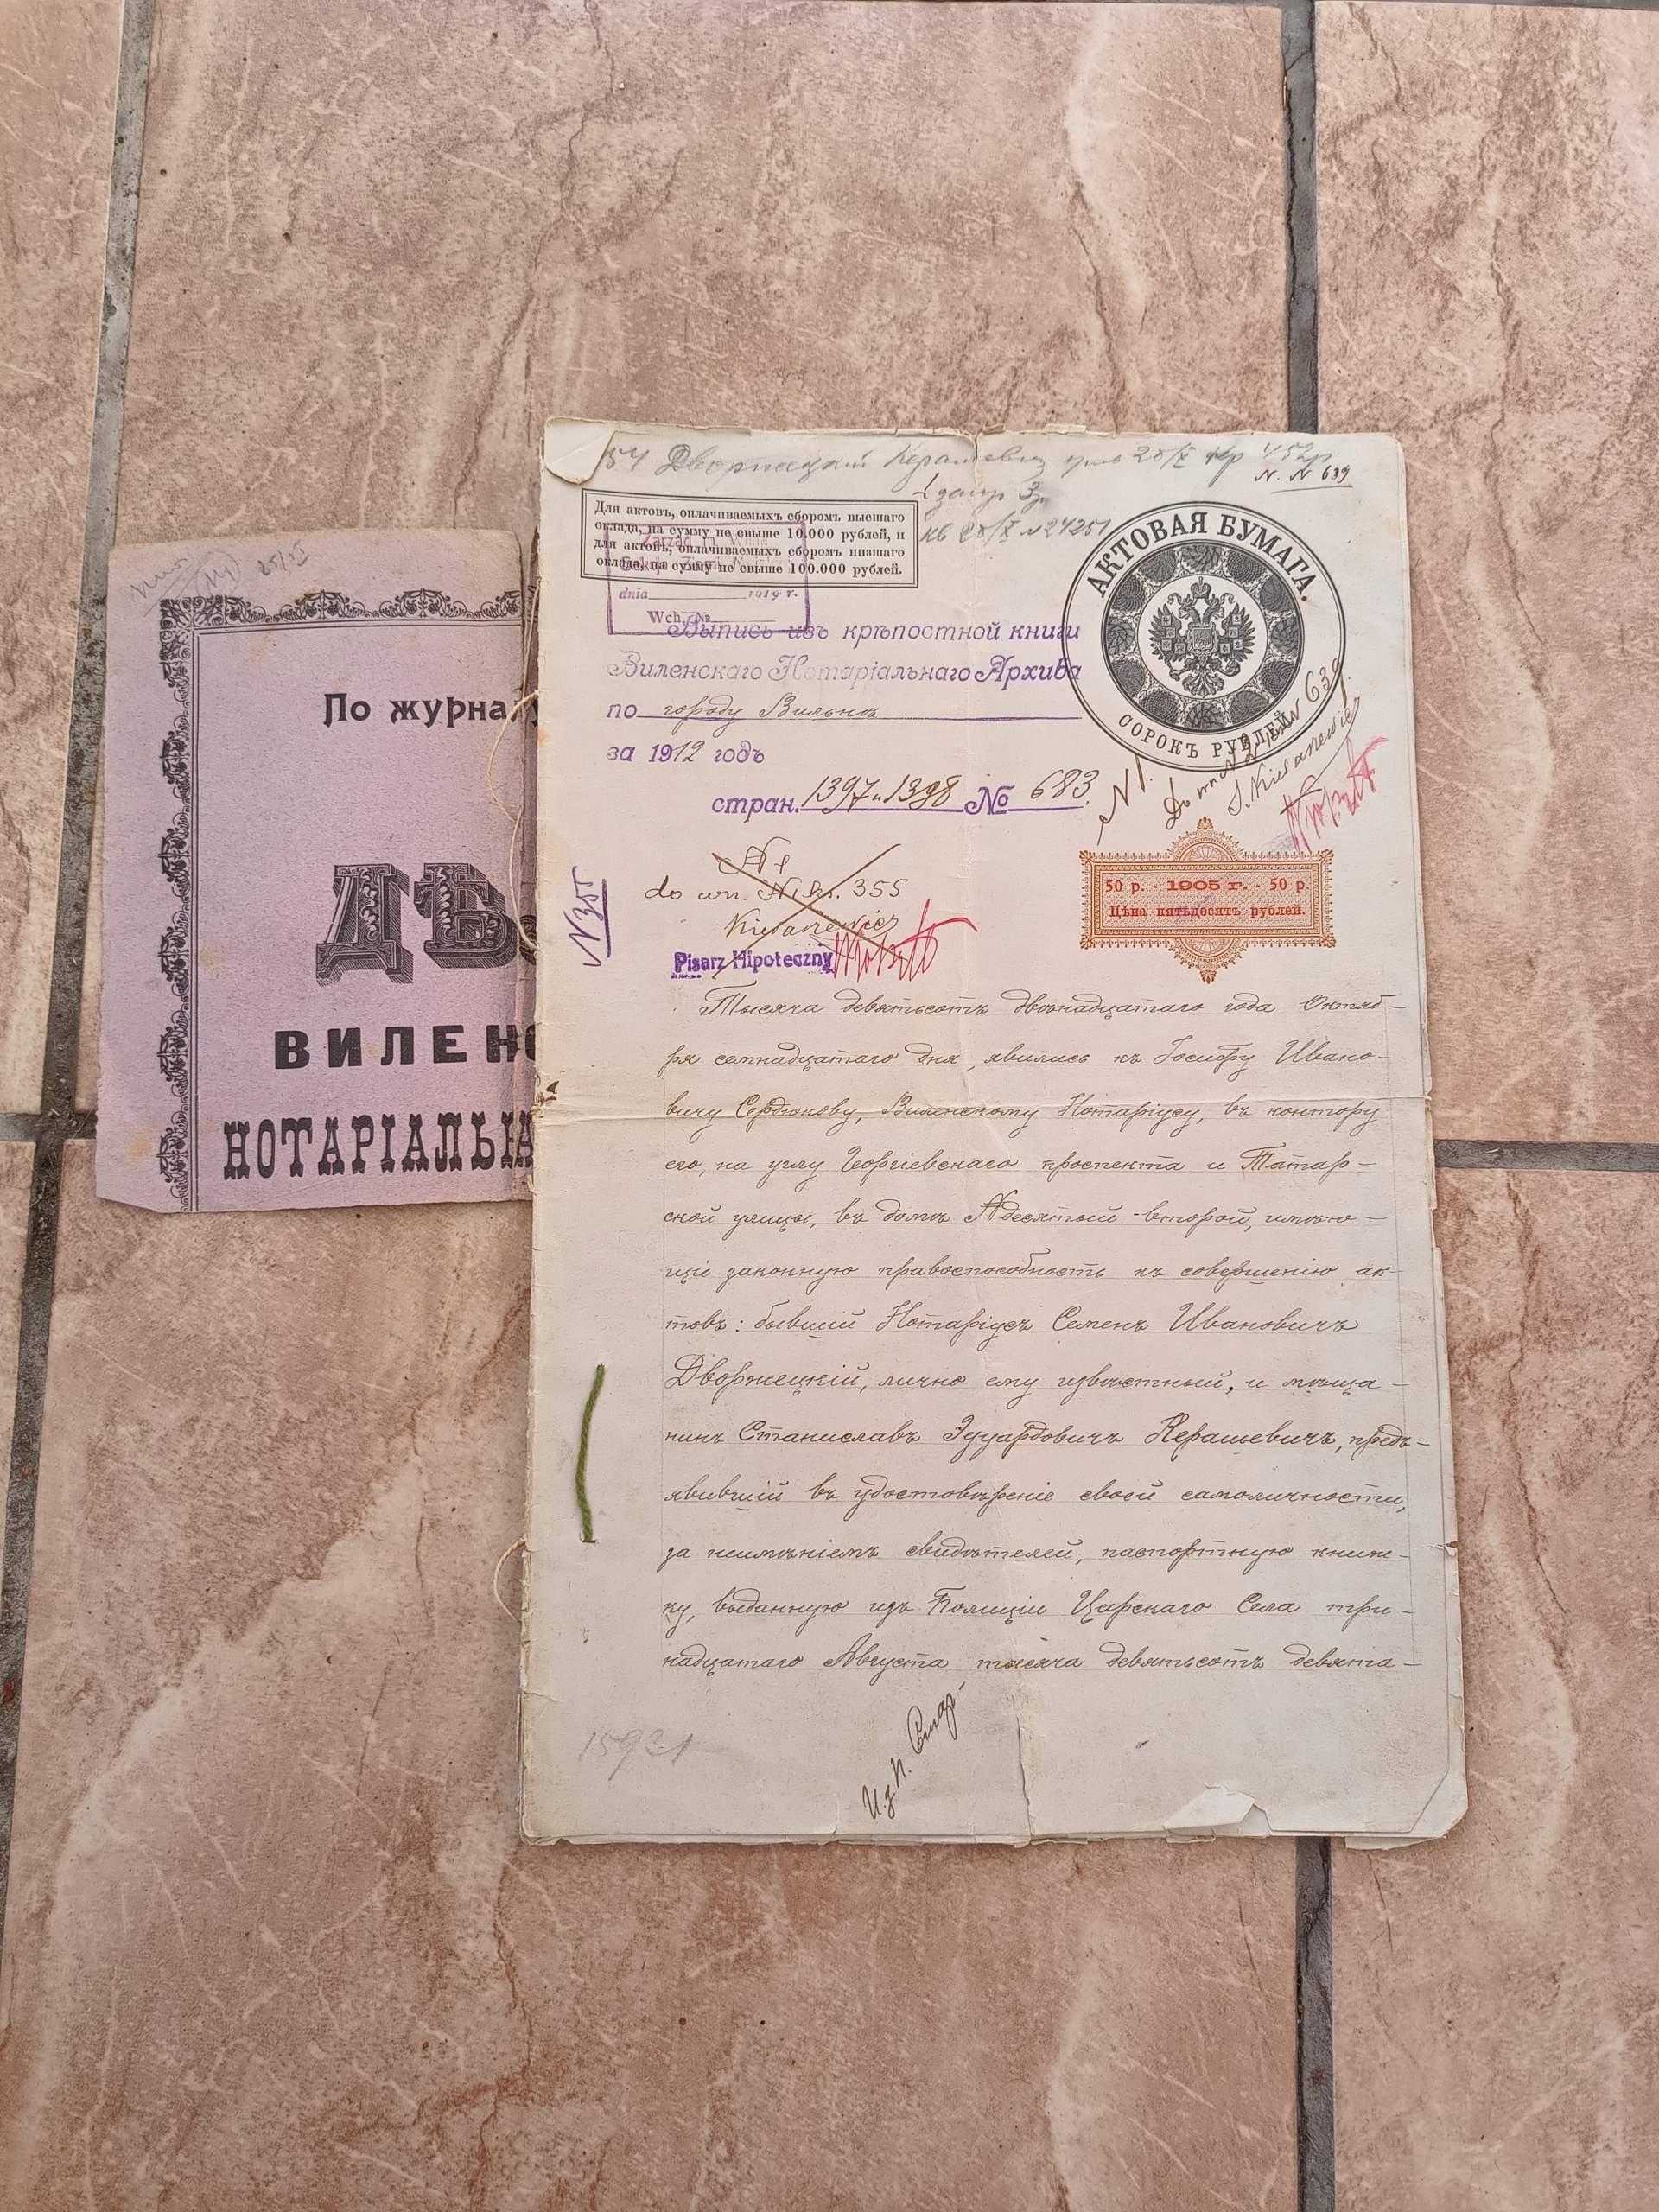 По журна
ДѢ
ВИЛЕНС
НОТАРІАЛЬН
25/XI
54 Дворжецкій Керашевичъ 28/X 452р
N. N 639
Для актовъ, оплачиваемыхъ сборомъ высшаго
оклада, на сумму не свыше 10.000 рублей, и
для актовъ, оплачиваемыхъ сборомъ низшаго
оклада, на сумму не свыше 100.000 рублей.
кв 28/X № 24251
Zarząd m. Wilna
Sekcja Ziem
dnia 1919 r.
Wch. №
АКТОВАЯ БУМАГА.
СОРОКЪ РУБЛЕЙ
Выпись изъ крѣпостной книги
Виленскаго Нотаріальнаго Архива
по городу Вильнѣ
за 1912 годъ
стран. 1397 и 1398 № 683.
N 1.
N 639
N 1
do wn. N 355
Pisarz Hipoteczny
N 355
50 р. - 1905 г. - 50 р.
Цѣна пятьдесятъ рублей.
Тысяча девятьсотъ двѣнадцатаго года Октяб-
ря семнадцатаго дня, явились къ Іосифу Ивано-
вичу Сердюкову, Виленскому Нотаріусу, въ контору
его, на углу Георгіевскаго проспекта и Татар-
ской улицы, въ домѣ № десятый-второй, имѣю-
щіе законную правоспособность къ совершенію ак-
товъ: бывшій Нотаріусъ Семенъ Ивановичъ
Дворжецкій, лично ему извѣстный, и мѣща-
нинъ Станиславъ Эдуардовичъ Керашевичъ, предъ-
явившій въ удостовѣреніе своей самоличности,
за неимѣніемъ свидѣтелей, паспортную книж-
ку, выданную изъ Полиціи Царскаго Села три-
надцатаго Августа тысяча девятьсотъ девята-
И.д. н. Стар.
15931